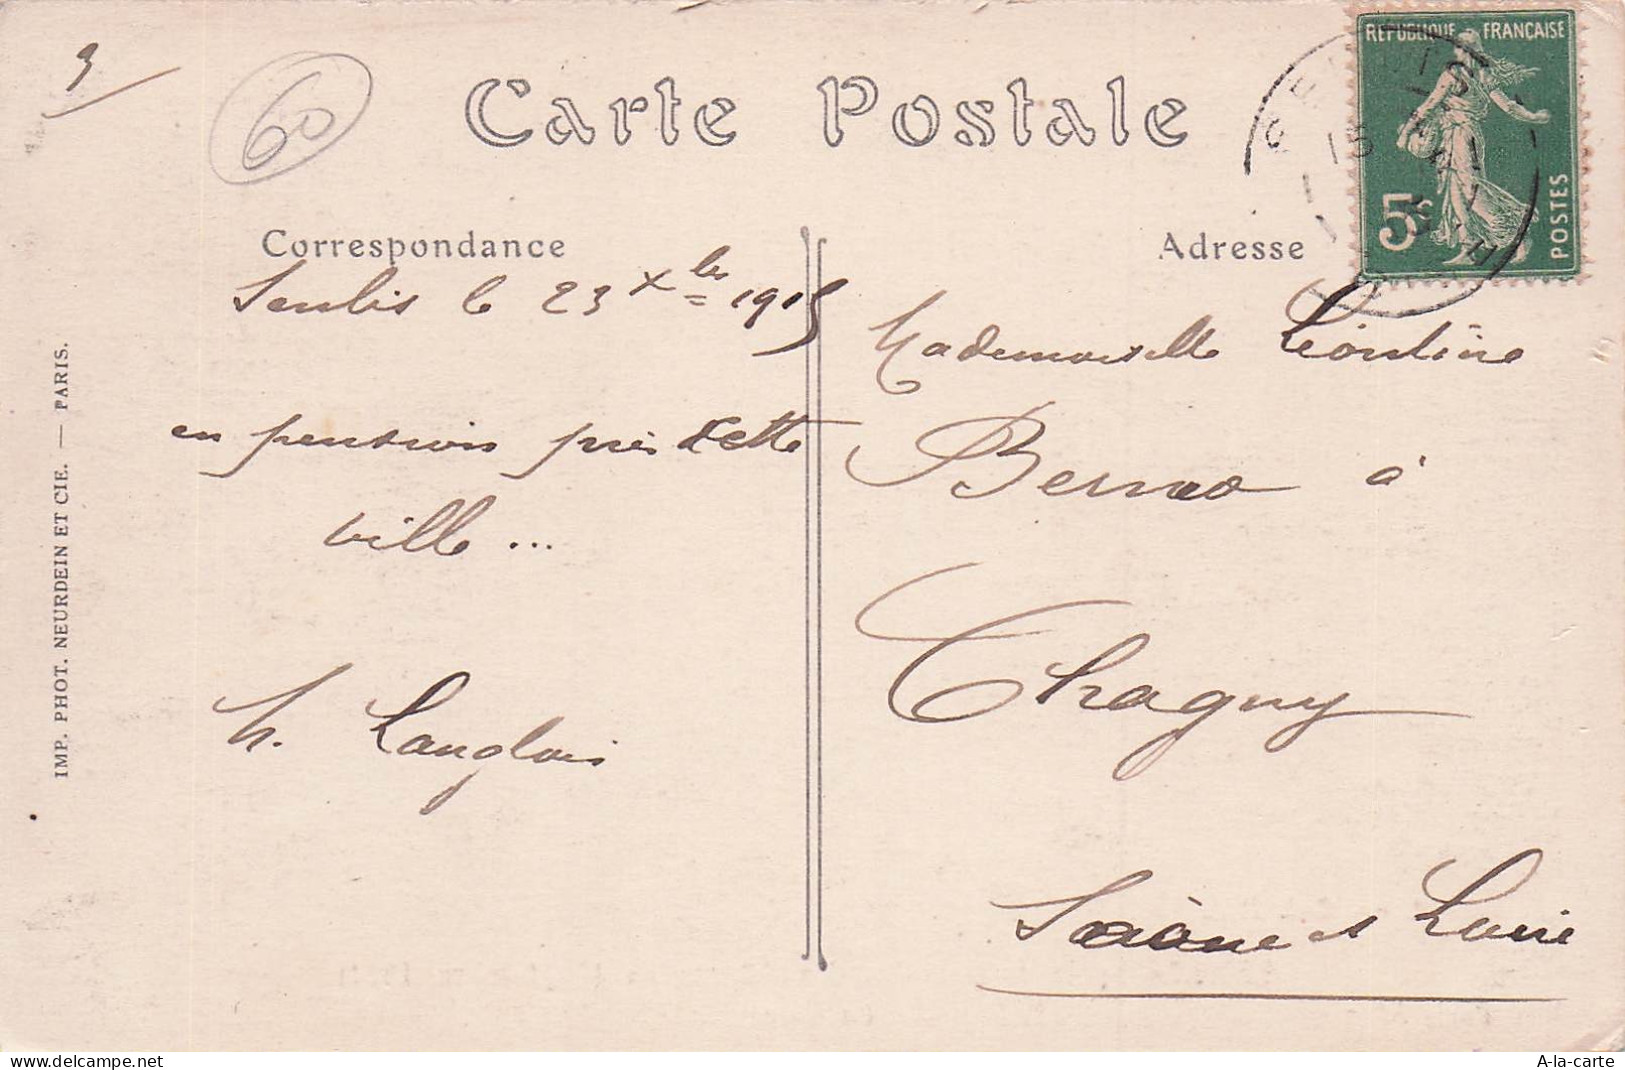 3
60
Carte Postale
REPUBLIQUE FRANÇAISE
5c
POSTES
Correspondance
Adresse
Senlis le 23 Xbre 1915
en pension près cette
ville ...
h. Langlois
Mademoiselle Léontine
à
Chagny
Saône et Loire
IMP. PHOT. NEURDEIN ET CIE. — PARIS.
A-la-carte
www.delcampe.net